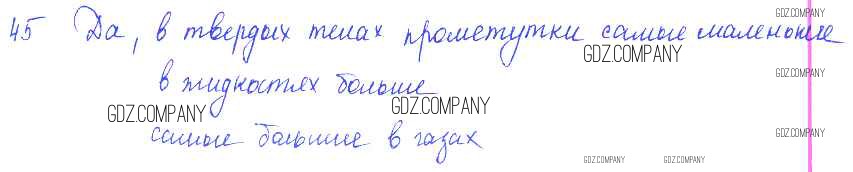 45 Да, в твердых телах прометутки самые маленькие
GDZ.COMPANY
GDZ.COMPANY
в жидкостях больше
GDZ.COMPANY
GDZ.COMPANY
GDZ.COMPANY
самые большие в газах
GDZ.COMPANY
GDZ.COMPANY GDZ.COMPANY